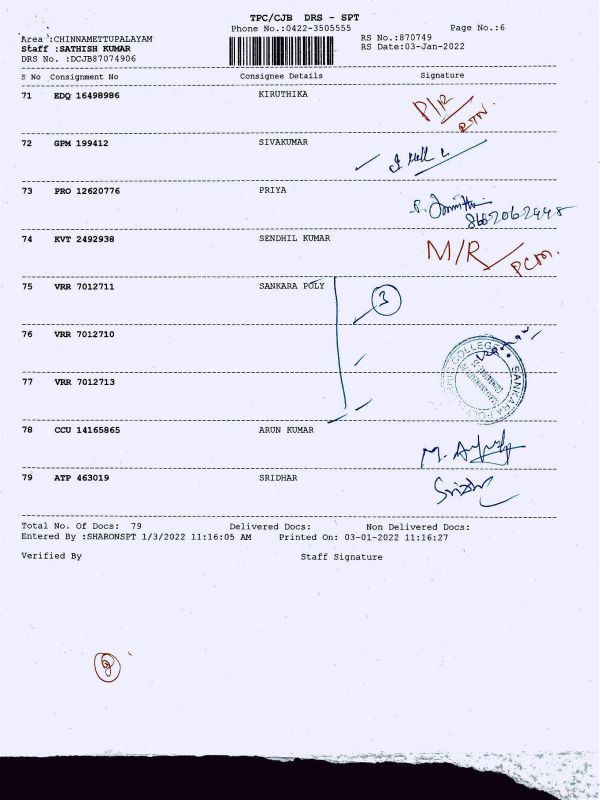 TPC/CJB DRS - SPT
Phone No.:0422-3505555 Page No.:6
Area :CHINNAMETTUPALAYAM RS No.:870749
Staff :SATHISH KUMAR RS Date:03-Jan-2022
DRS No. :DCJB87074906
S No Consignment No Consignee Details Signature
71 EDQ 16498986 KIRUTHIKA P/R
RTN.
72 GPM 199412 SIVAKUMAR
73 PRO 12620776 PRIYA
8662062448
74 KVT 2492938 SENDHIL KUMAR M/R
75 VRR 7012711 SANKARA POLY 3
76 VRR 7012710
COLLEGE SANKARA
77 VRR 7012713
78 CCU 14165865 ARUN KUMAR
79 ATP 463019 SRIDHAR
Total No. Of Docs: 79 Delivered Docs: Non Delivered Docs:
Entered By :SHARONSPT 1/3/2022 11:16:05 AM Printed On: 03-01-2022 11:16:27
Verified By Staff Signature